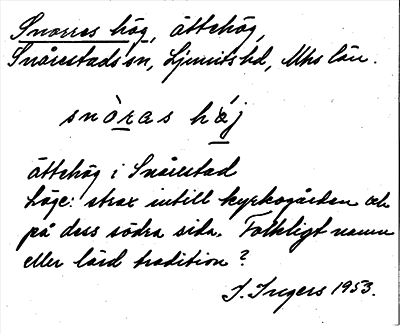 Snorres hög, ättehög,
Snårestads sn, Ljunits hd, Mhs län.
snòras hǽj
ättehög i Snårestad
Läge: strax intill kyrkogården och
på dess södra sida. Folkligt namn
eller lärd tradition?
I. Ingers 1953.